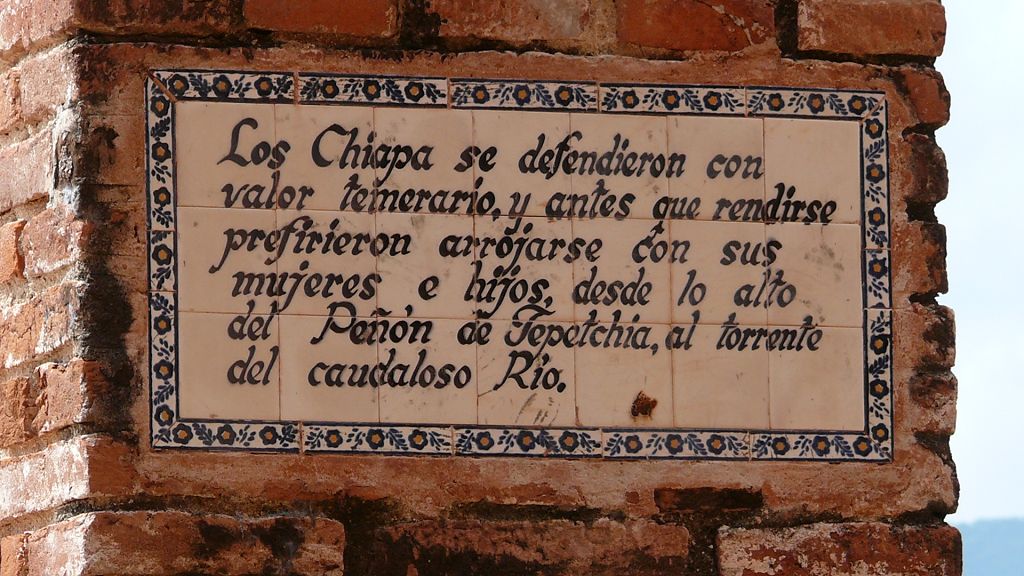 Los Chiapa se defendieron con
valor temerario, y antes que rendirse
prefirieron arrojarse con sus
mujeres e hijos, desde lo alto
del Peñón de Tepetchia, al torrente
del caudaloso Río.